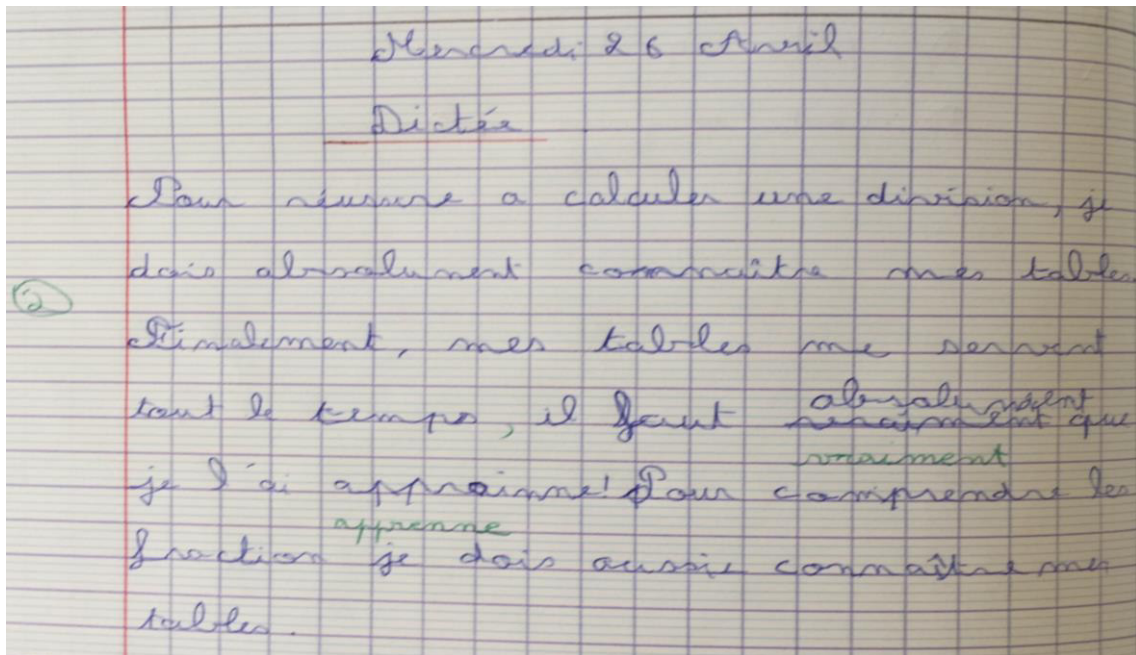 Mercredi 26 Avril
Dictée
Pour réussire a calculer une division, je
dois absolument connaître mes tables
2
Finalement, mes tables me servent
absolument
tout le temps, il faut vraiment que
vraiment
je l'ai apprainne! Pour comprendre les
apprenne
fraction je dois aussie connaître mes
tables.